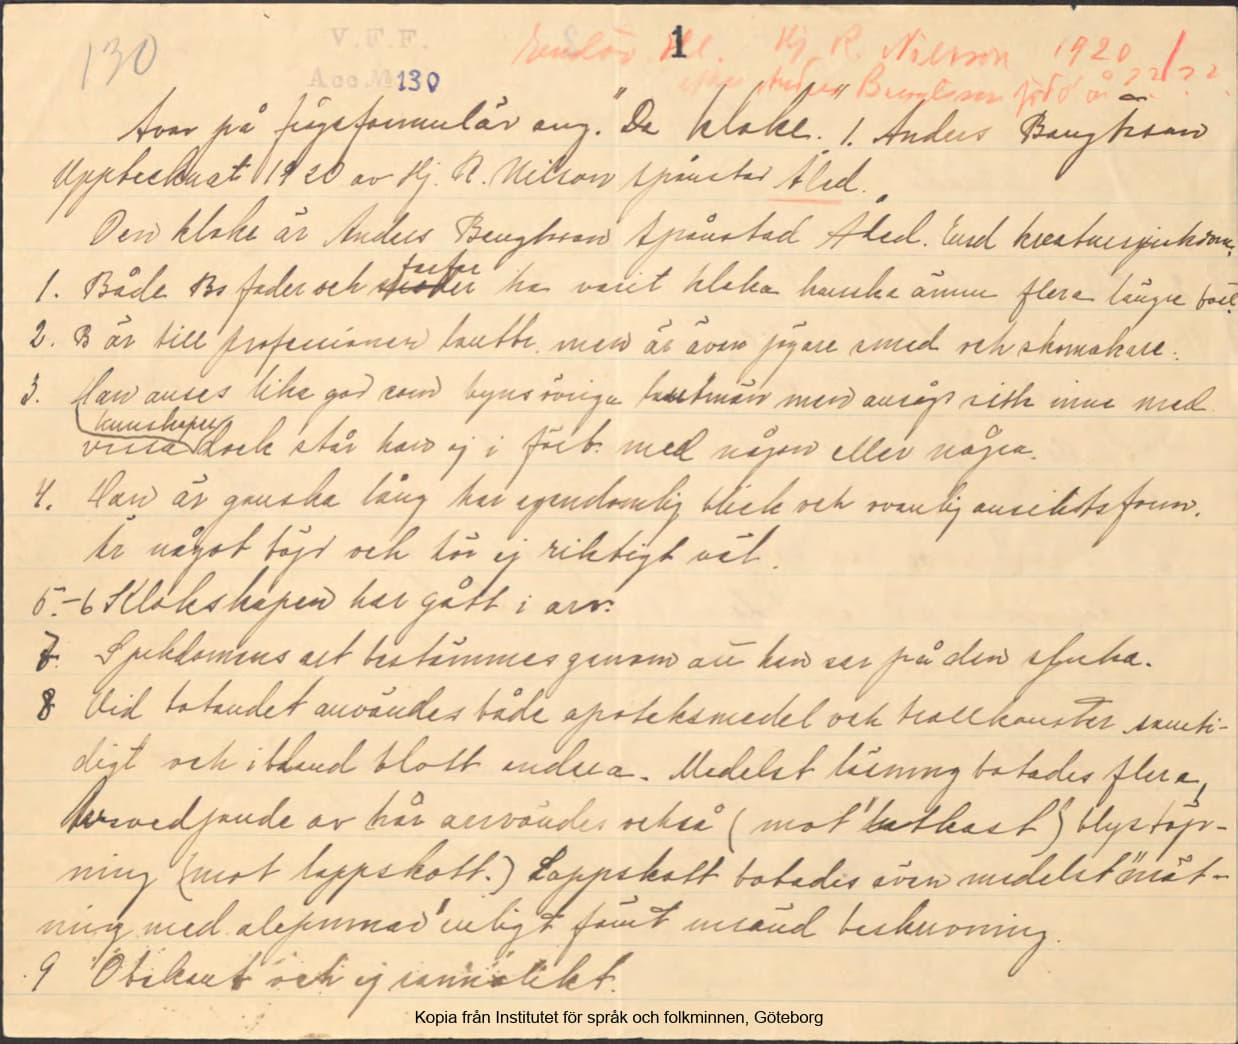 130
V.F.F.
Acc. No 130
1
Hj. R. Nilsson 1920
Anders Bengtsson född år ????
Svar på frågeformulär ang. "De kloke". 1. Anders Bengtsson
Upptecknat 1920 av Hj. R. Nilsson Spånstad Åled.
Den kloke är Anders Bengtsson Spånstad Åled. End kreatursjukdom.
1. Både Bs fader och farfar ha varit kloka kanske ännu flera längre
2. B är till professionen lantbr. men är även jägare smed och skomakare.
3. Han anses lika god som byns övriga lantmän men ansågs sitta inne med
vissa kunskaper dock står han ej i förb. med någon eller några.
4. Han är ganska lång har egendomlig blick och ovanlig ansiktsform.
Är något böjd och hör ej riktigt väl.
5.-6 Klokskapen har gått i arv.
7. Sjukdomens art bestämmes genom att han ser på den sjuka.
8 Vid botandet användes både apoteksmedel och trollkonster samti-
digt och ibland blott endera. Medelst läsning botades flera,
avsvedjande av hår användes också (mot "lutkast") blystöp-
ning (mot lappskott.) Lappskott botades även medelst "mät-
ning med alepinnar" enligt förut insänd beskrivning.
9 Obekant och ej sannolikt.
Kopia från Institutet för språk och folkminnen, Göteborg